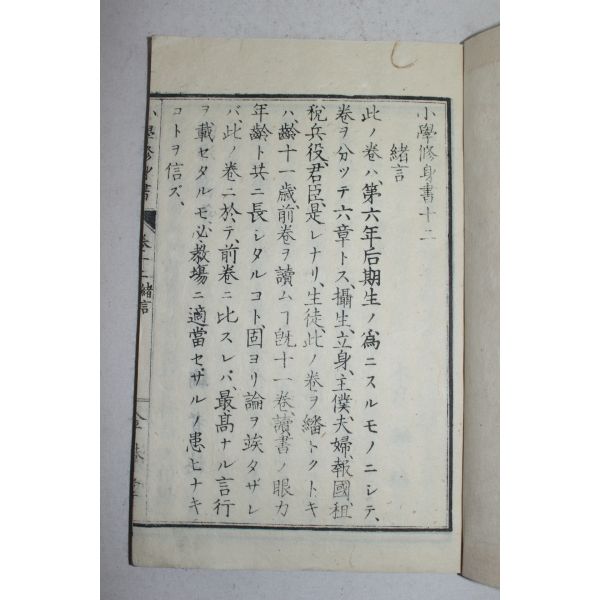 小學修身書十二
緒言
此ノ卷ハ、第六年后期生ノ爲ニスルモノニシテ、
卷ヲ分ツテ六章トス、攝生、立身、主僕、夫婦、報國、租
稅兵役、君臣、是レナリ、生徒、此ノ卷ヲ繙トクトキ
ハ、齡十一歲、前卷ヲ讀ムヿ旣十一卷、讀書ノ眼力
年齡ト共ニ長シタルコト、固ヨリ論ヲ竢タザレ
バ、此ノ卷ニ於テ、前卷ニ比スレバ、最高ナル言行
ヲ載セタルモ、必教場ニ適當セザルノ患ヒナキ
コトヲ信ズ、
小學修身書
卷十二緒言